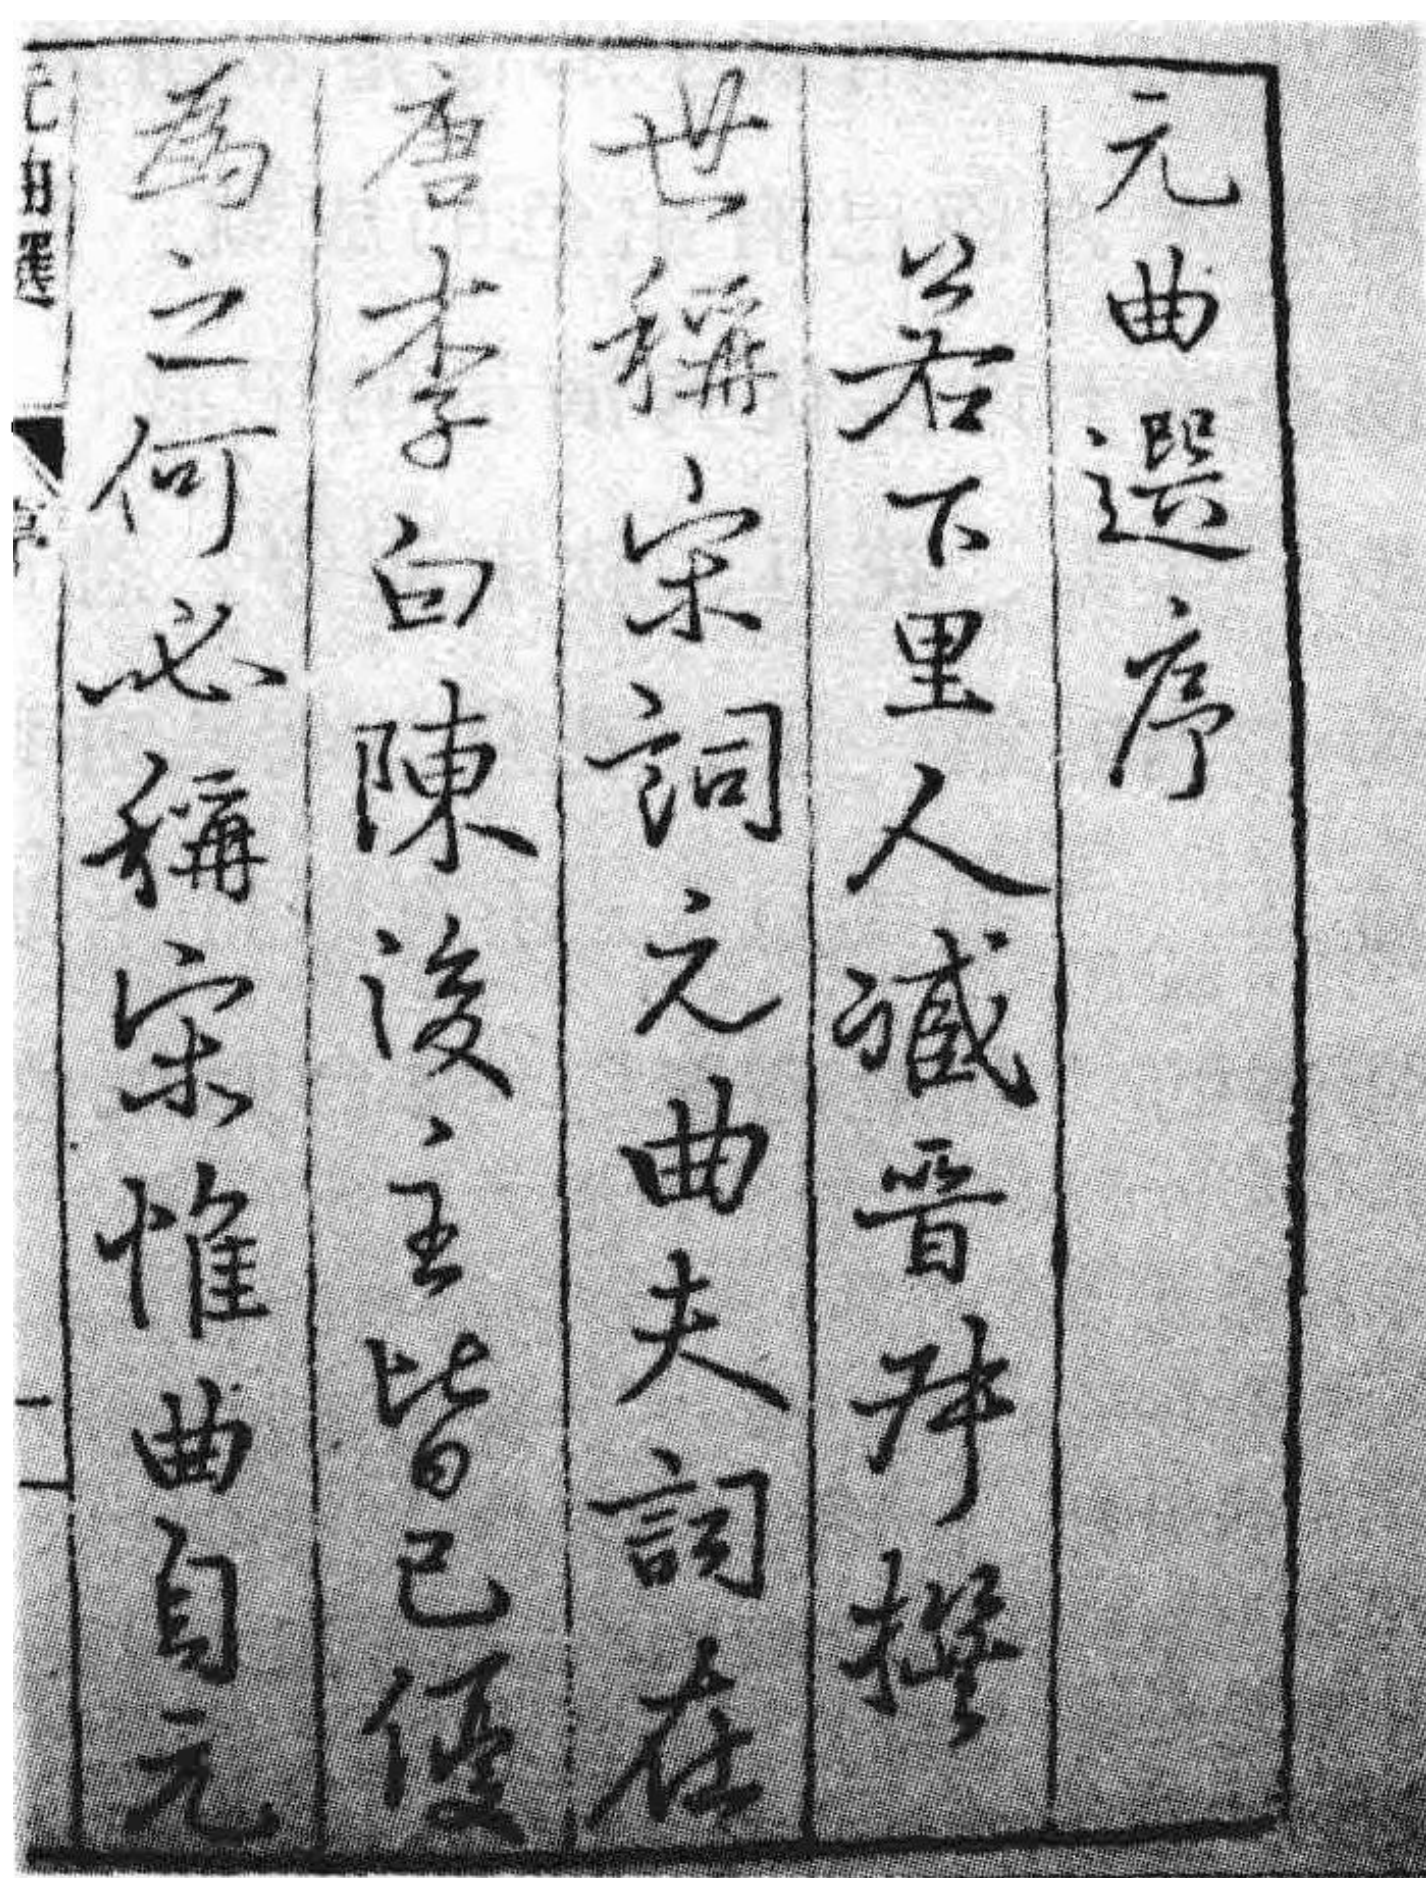 元曲選序
若下里人臧晉叔撰
世稱宋詞元曲夫詞在
唐李白陳後主皆已優
為之何必稱宋惟曲自元
元曲選